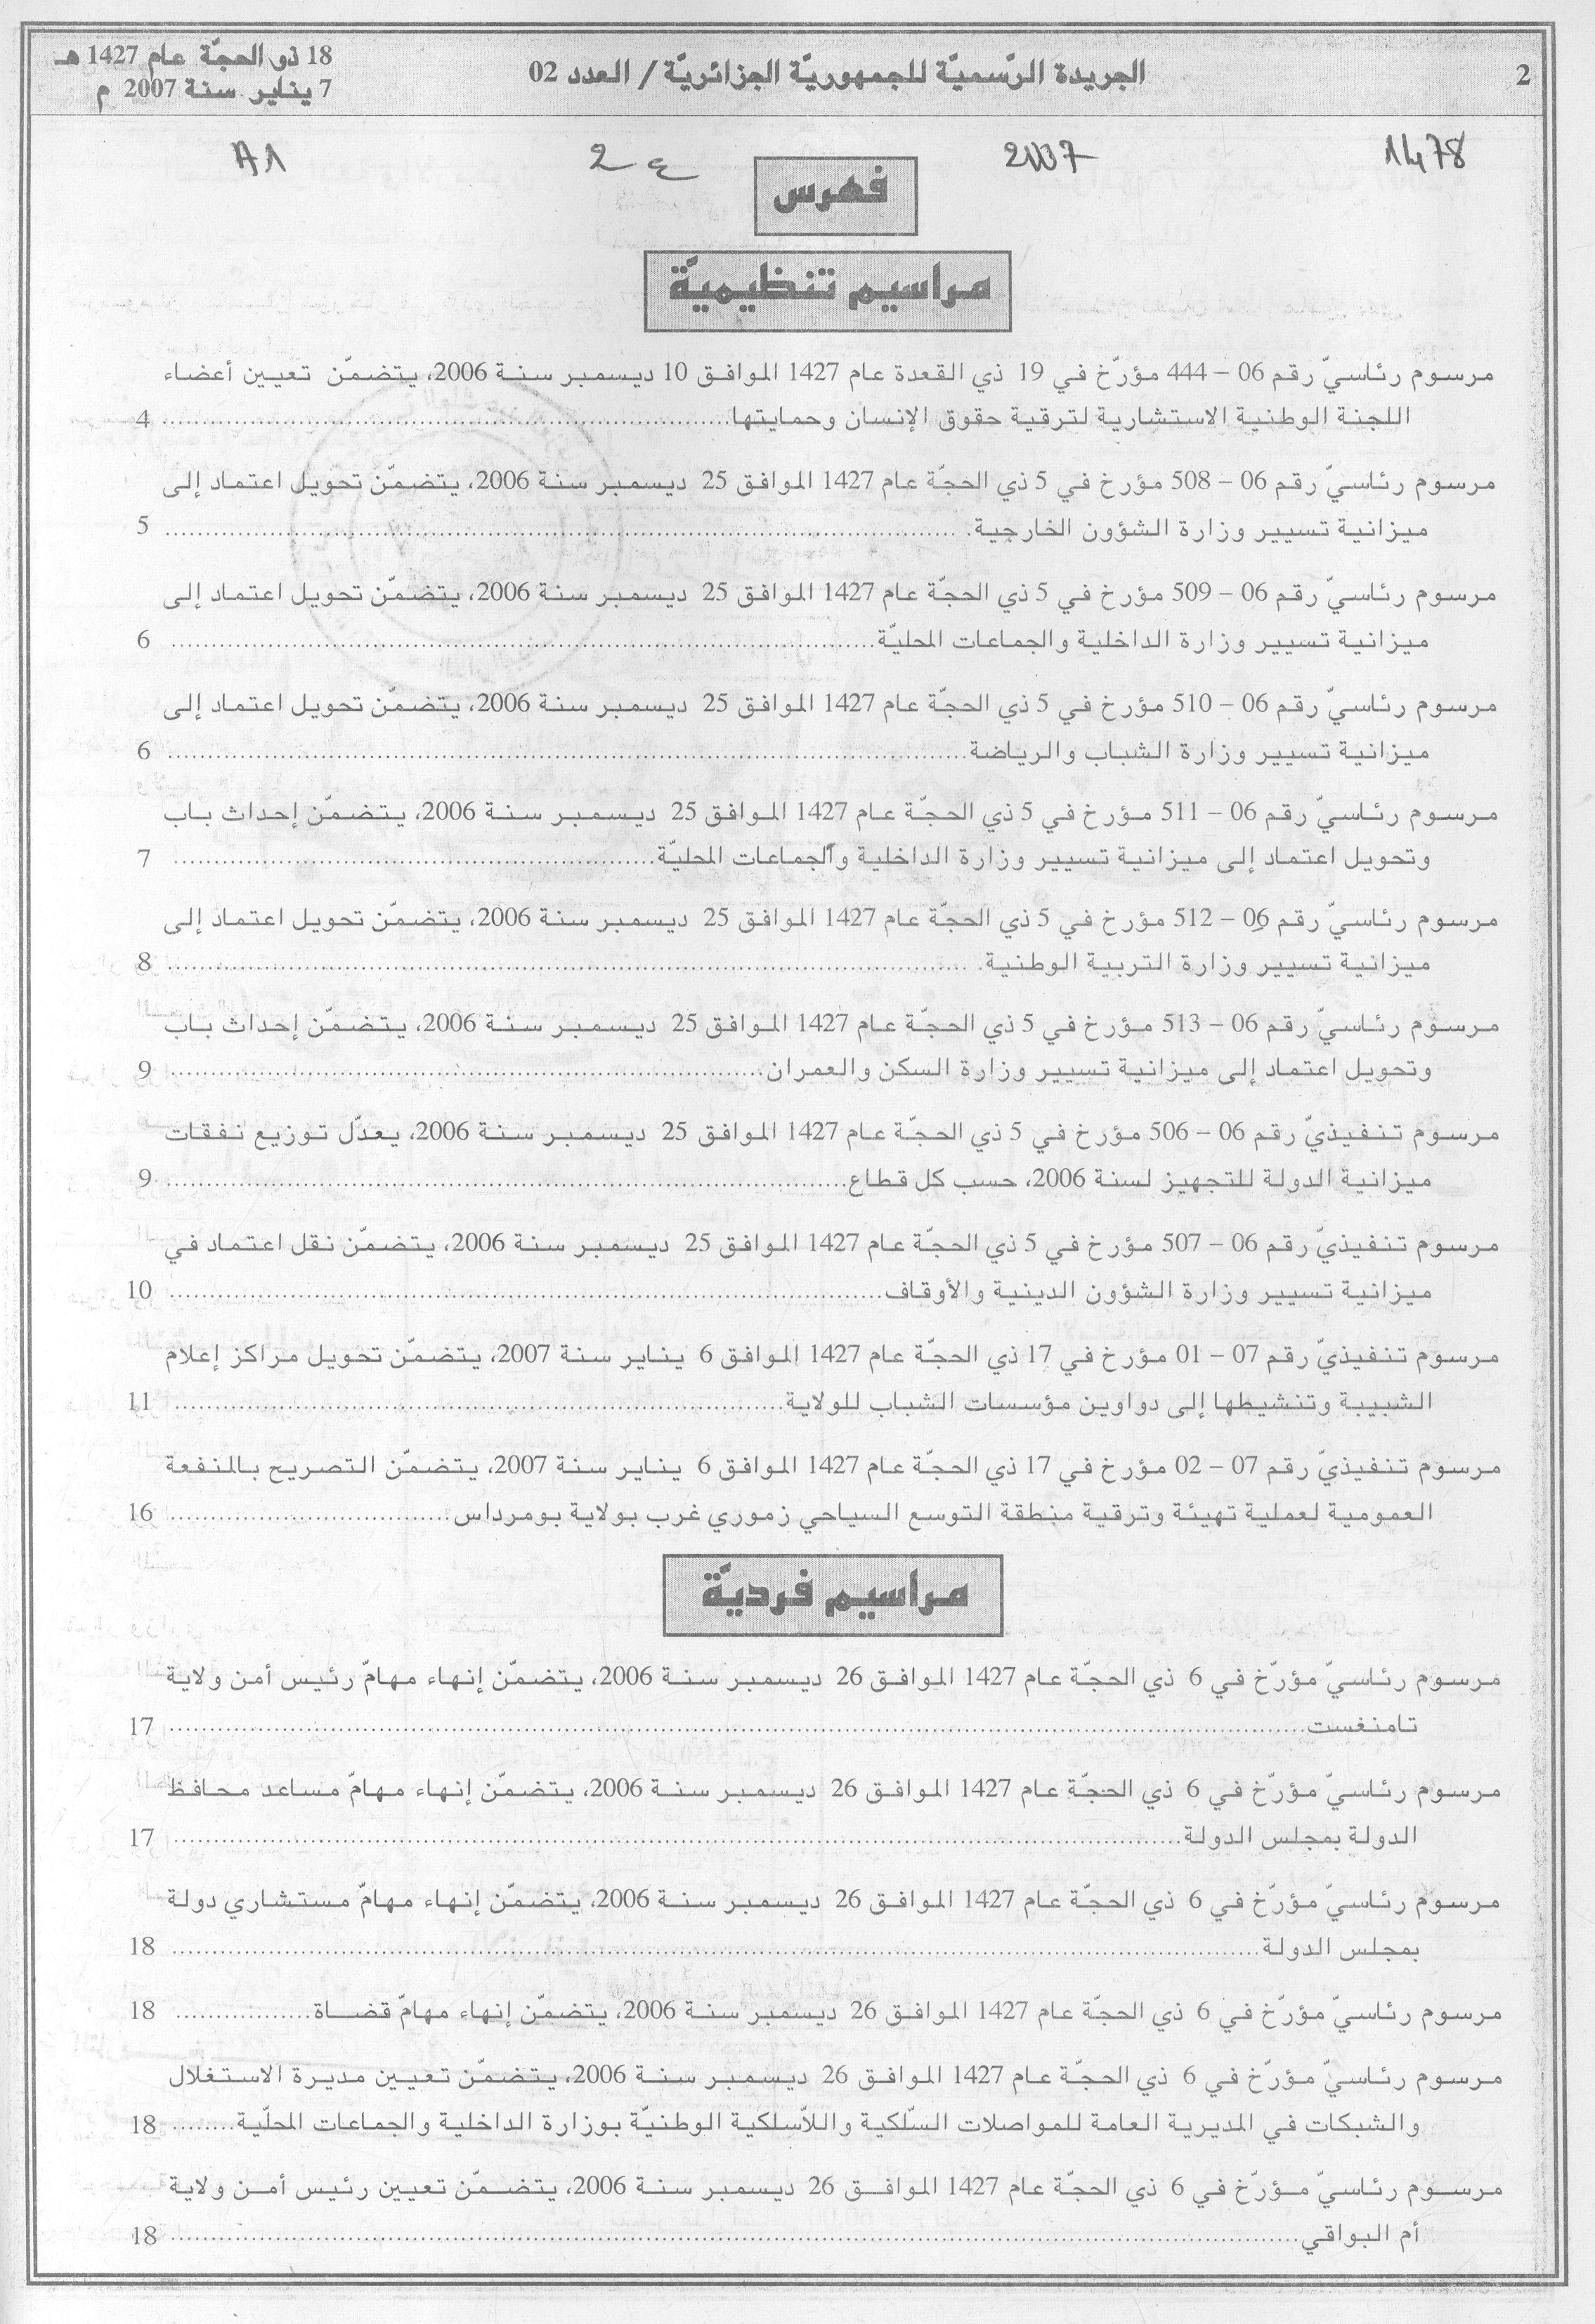 2
الجريدة الرّسميّة للجمهوريّة الجزائريّة / العدد 02
18 ذو الحجّة عام 1427 هـ
7 يناير سنة 2007 م
1478
2007
2 ع
A1
فهرس
مراسيم تنظيميّة
مرسوم رئاسيّ رقم 06 – 444 مؤرّخ في 19 ذي القعدة عام 1427 الموافق 10 ديسمبر سنة 2006، يتضمّن تعيين أعضاء
اللجنة الوطنية الاستشارية لترقية حقوق الإنسان وحمايتها........ 4
مرسوم رئاسيّ رقم 06 – 508 مؤرخ في 5 ذي الحجّة عام 1427 الموافق 25 ديسمبر سنة 2006، يتضمّن تحويل اعتماد إلى
ميزانية تسيير وزارة الشؤون الخارجية........ 5
مرسوم رئاسيّ رقم 06 – 509 مؤرخ في 5 ذي الحجّة عام 1427 الموافق 25 ديسمبر سنة 2006، يتضمّن تحويل اعتماد إلى
ميزانية تسيير وزارة الداخلية والجماعات المحليّة........ 6
مرسوم رئاسيّ رقم 06 – 510 مؤرخ في 5 ذي الحجّة عام 1427 الموافق 25 ديسمبر سنة 2006، يتضمّن تحويل اعتماد إلى
ميزانية تسيير وزارة الشباب والرياضة........ 6
مرسوم رئاسيّ رقم 06 – 511 مؤرخ في 5 ذي الحجّة عام 1427 الموافق 25 ديسمبر سنة 2006، يتضمّن إحداث باب
وتحويل اعتماد إلى ميزانية تسيير وزارة الداخلية والجماعات المحليّة........ 7
مرسوم رئاسيّ رقم 06 – 512 مؤرخ في 5 ذي الحجّة عام 1427 الموافق 25 ديسمبر سنة 2006، يتضمّن تحويل اعتماد إلى
ميزانية تسيير وزارة التربية الوطنية........ 8
مرسوم رئاسيّ رقم 06 – 513 مؤرخ في 5 ذي الحجّة عام 1427 الموافق 25 ديسمبر سنة 2006، يتضمّن إحداث باب
وتحويل اعتماد إلى ميزانية تسيير وزارة السكن والعمران........ 9
مرسوم تنفيذيّ رقم 06 – 506 مؤرخ في 5 ذي الحجّة عام 1427 الموافق 25 ديسمبر سنة 2006، يعدّل توزيع نفقات
ميزانية الدولة للتجهيز لسنة 2006، حسب كل قطاع........ 9
مرسوم تنفيذيّ رقم 06 – 507 مؤرخ في 5 ذي الحجّة عام 1427 الموافق 25 ديسمبر سنة 2006، يتضمّن نقل اعتماد في
ميزانية تسيير وزارة الشؤون الدينية والأوقاف........ 10
مرسوم تنفيذيّ رقم 07 – 01 مؤرخ في 17 ذي الحجّة عام 1427 الموافق 6 يناير سنة 2007، يتضمّن تحويل مراكز إعلام
الشبيبة وتنشيطها إلى دواوين مؤسسات الشباب للولاية........ 11
مرسوم تنفيذيّ رقم 07 – 02 مؤرخ في 17 ذي الحجّة عام 1427 الموافق 6 يناير سنة 2007، يتضمّن التصريح بالمنفعة
العمومية لعملية تهيئة وترقية منطقة التوسع السياحي زموري غرب بولاية بومرداس........ 16
مراسيم فرديّة
مرسوم رئاسيّ مؤرّخ في 6 ذي الحجّة عام 1427 الموافق 26 ديسمبر سنة 2006، يتضمّن إنهاء مهامّ رئيس أمن ولاية
تامنغست........ 17
مرسوم رئاسيّ مؤرّخ في 6 ذي الحجّة عام 1427 الموافق 26 ديسمبر سنة 2006، يتضمّن إنهاء مهامّ مساعد محافظ
الدولة بمجلس الدولة........ 17
مرسوم رئاسيّ مؤرّخ في 6 ذي الحجّة عام 1427 الموافق 26 ديسمبر سنة 2006، يتضمّن إنهاء مهامّ مستشاري دولة
بمجلس الدولة........ 18
مرسوم رئاسيّ مؤرّخ في 6 ذي الحجّة عام 1427 الموافق 26 ديسمبر سنة 2006، يتضمّن إنهاء مهامّ قضاة........ 18
مرسوم رئاسيّ مؤرّخ في 6 ذي الحجّة عام 1427 الموافق 26 ديسمبر سنة 2006، يتضمّن تعيين مديرة الاستغلال
والشبكات في المديرية العامة للمواصلات السّلكية واللاّسلكية الوطنيّة بوزارة الداخلية والجماعات المحلّية........ 18
مرسوم رئاسيّ مؤرّخ في 6 ذي الحجّة عام 1427 الموافق 26 ديسمبر سنة 2006، يتضمّن تعيين رئيس أمن ولاية
أم البواقي........ 18